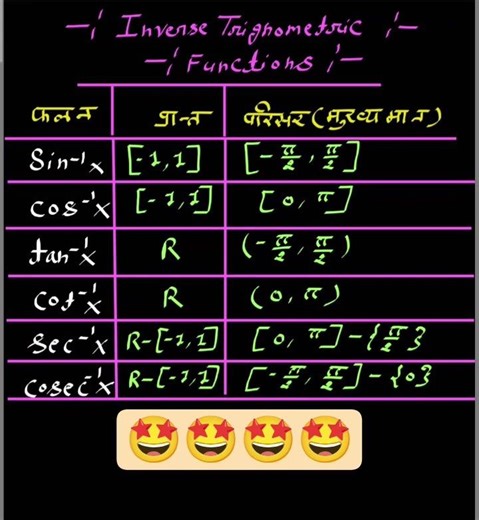 -¦ Inverse Trignometric ¦-
-¦ Functions ¦-
फलन प्रान्त परिसर (मुख्य मान)
Sin⁻¹x [-1,1] [-π/2, π/2]
cos⁻¹x [-1,1] [0, π]
tan⁻¹x R (-π/2, π/2)
Cot⁻¹x R (0, π)
Sec⁻¹x R-[-1,1] [0, π]-{π/2}
cosec⁻¹x R-[-1,1] [-π/2, π/2]-{0}